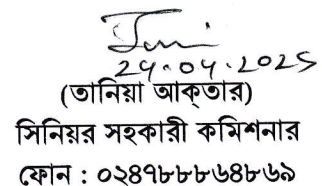 24.04.2025
(তানিয়া আক্তার)
সিনিয়র সহকারী কমিশনার
ফোন : ০২৪৭৮৮৮৬৪৮৬৯